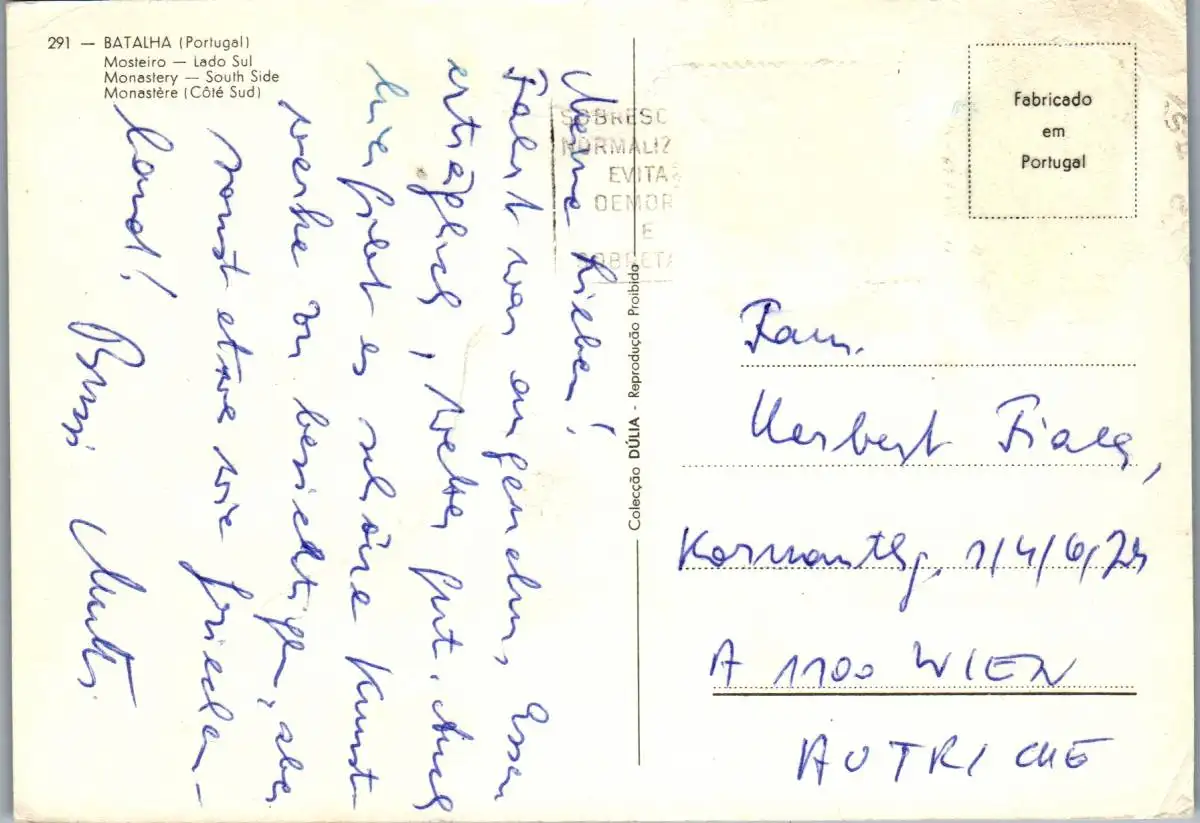 291 — BATALHA (Portugal)
Mosteiro — Lado Sul
Monastery — South Side
Monastère (Côté Sud)
Meine Lieben!
Fahrt war angenehm, Essen
erträglich, Wetter gut. Auch
hier gibt es schöne Kunst-
werke zu besichtigen, aber
sonst etwa wie Griechen-
land! Bussi Mutti.
SOBRESC
NORMALIZ
EVITA
DEMOR
E
SOBRETA
Colecção DÚLIA - Reprodução Proibida
Fabricado
em
Portugal
Fam.
Herbert
1/4/6/
A 1100 WIEN
AUTRICHE